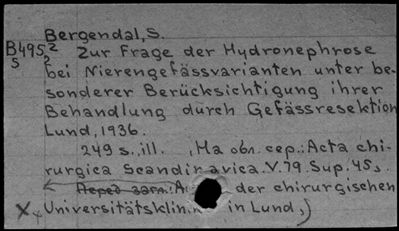 Bergendal, S.
B495 2 Zur Frage der Hydronephrose
5 2 bei Nierengefässvarianten unter be-
sonderer Berücksichtigung ihrer
Behandlung durch Gefässresektion
Lund, 1936.
249 s., ill. (На обл. сер.: Acta chi-
rurgica Scandinavica. V. 79. Sup. 45).
Перед загл.: A der chirurgischen
Universitätsklin in Lund,)